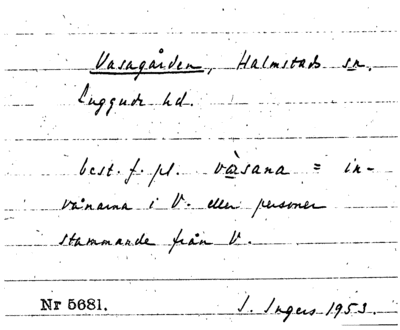 Vasagården, Halmstads sn.
Luggude hd.
best. f. pl. vàsana = in-
vånarna i V. eller personer
stammande från V.
Nr 5681. I. Ingers 1953.